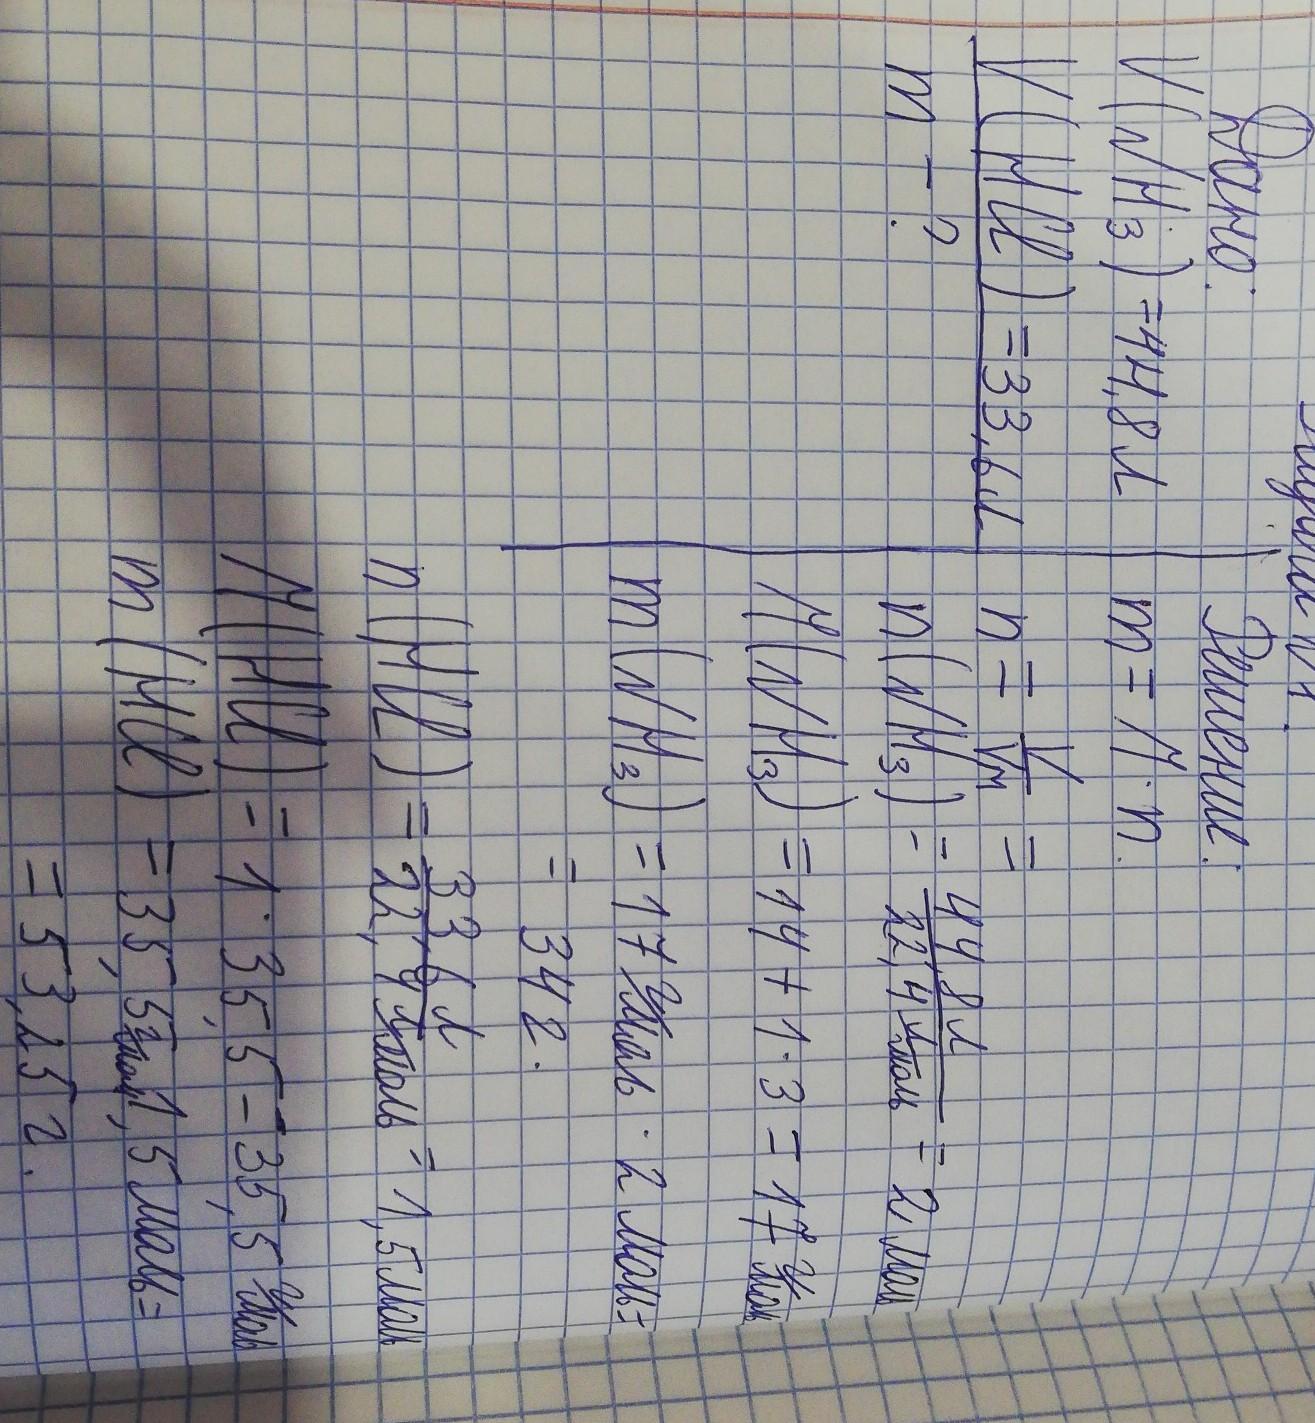 Дано:
V(NH3) = 44,8 л
V(HCl) = 33,6 л
m - ?
Решение:
m = M · n.
n = V/Vм =
n(NH3) = 44,8 л / 22,4 л/моль = 2 мол
M(NH3) = 14 + 1 · 3 = 17 г/мол
m(NH3) = 17 г/моль · 2 моль =
= 34 г.
n(HCl) = 33,6 л / 22,4 л/моль = 1,5 мол
M(HCl) = 1 · 35,5 - 35,5 г/мол
m(HCl) = 35,5 г/мол 1,5 моль =
= 53,25 г.